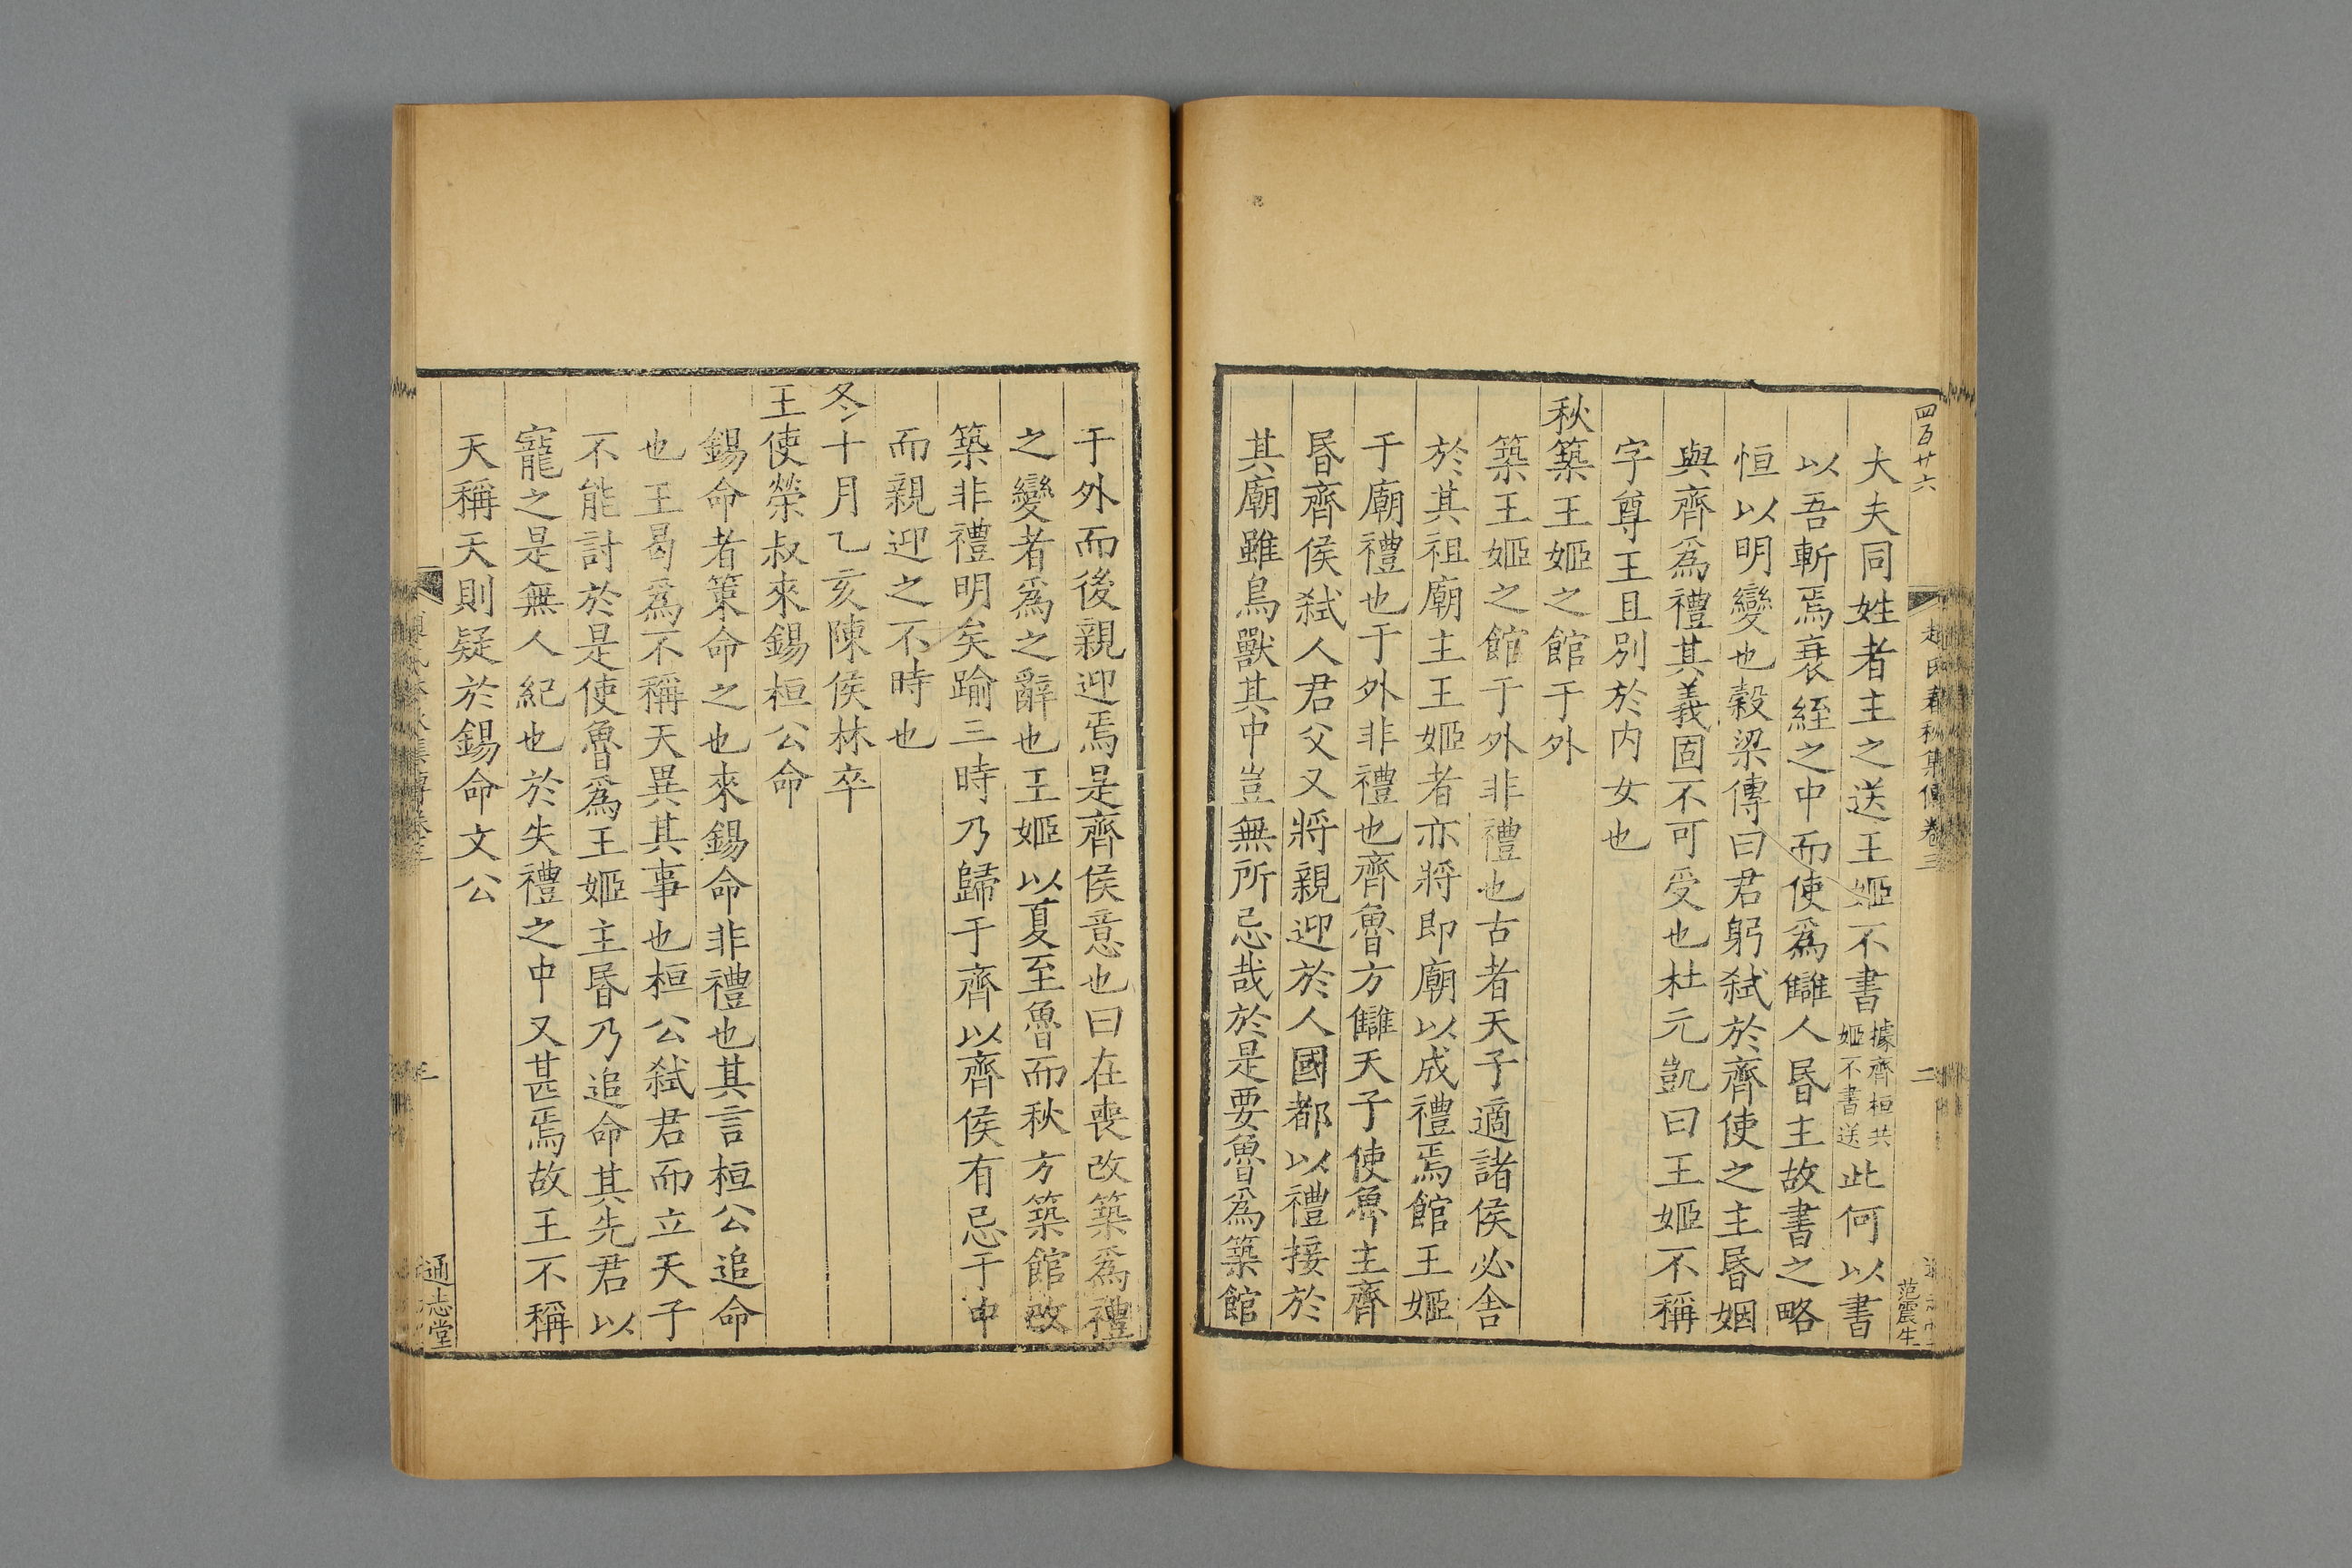 四百廿六
趙氏春秋集傳卷三
二
范震生
大夫同姓者主之送王姬不書據齊桓共姬不書送此何以書
以吾斬焉衰絰之中而使爲讎人昬主故書之略
恒以明變也穀梁傳曰君躬弒於齊使之主昬姻
與齊爲禮其義固不可受也杜元凱曰王姬不稱
字尊王且別於内女也
秋築王姬之館于外
築王姬之館于外非禮也古者天子適諸侯必舍
於其祖廟主王姬者亦將即廟以成禮焉館王姬
于廟禮也于外非禮也齊魯方讎天子使魯主齊
昬齊侯弒人君父又將親迎於人國都以禮接於
其廟雖鳥獸其中豈無所忌哉於是要魯爲築館
于外而後親迎焉是齊侯意也曰在喪改築爲禮
之變者爲之辭也王姬以夏至魯而秋方築館改
築非禮明矣踰三時乃歸于齊以齊侯有忌于中
而親迎之不時也
冬十月乙亥陳侯林卒
王使榮叔來錫桓公命
錫命者策命之也來錫命非禮也其言桓公追命
也王曷爲不稱天異其事也桓公弒君而立天子
不能討於是使魯爲王姬主昬乃追命其先君以
寵之是無人紀也於失禮之中又甚焉故王不稱
天稱天則疑於錫命文公
通志堂